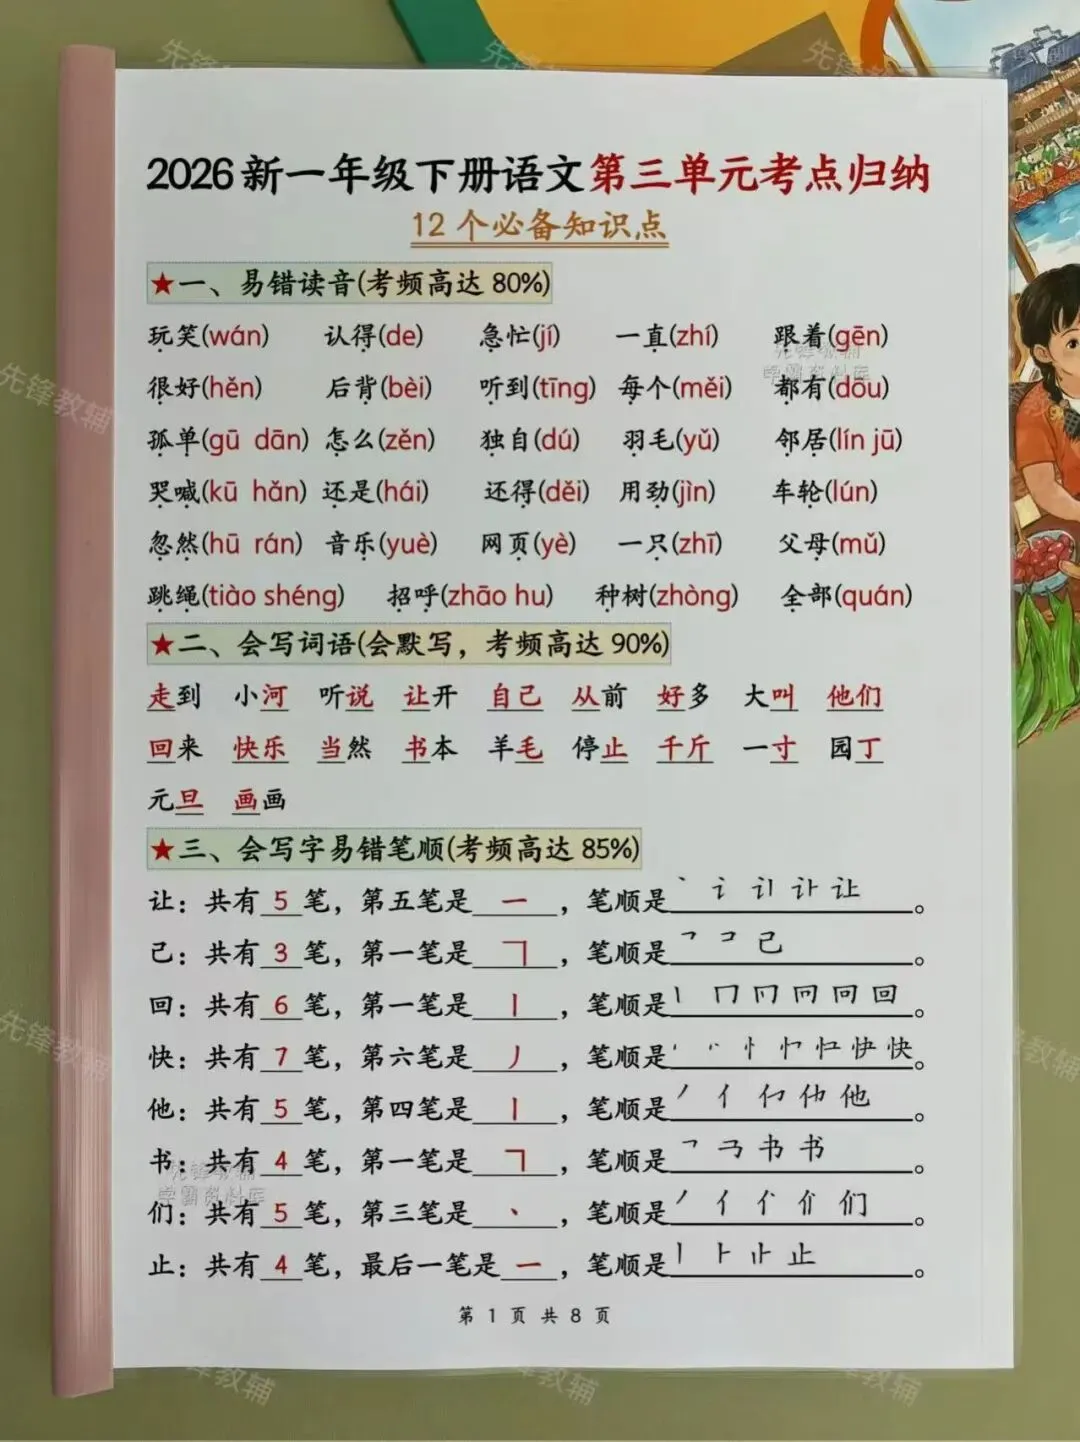 2026新一年级下册语文第三单元考点归纳
12个必备知识点
★一、易错读音(考频高达 80%)
玩笑(wán) 认得(de) 急忙(jí) 一直(zhí) 跟着(gēn)
很好(hěn) 后背(bèi) 听到(tīng) 每个(měi) 都有(dōu)
孤单(gū dān) 怎么(zěn) 独自(dú) 羽毛(yǔ) 邻居(lín jū)
哭喊(kū hǎn) 还是(hái) 还得(děi) 用劲(jìn) 车轮(lún)
忽然(hū rán) 音乐(yuè) 网页(yè) 一只(zhī) 父母(mǔ)
跳绳(tiào shéng) 招呼(zhāo hu) 种树(zhòng) 全部(quán)
★二、会写词语(会默写，考频高达 90%)
走到 小河 听说 让开 自己 从前 好多 大叫 他们
回来 快乐 当然 书本 羊毛 停止 千斤 一寸 园丁
元旦 画画
★三、会写字易错笔顺(考频高达 85%)
让：共有 5 笔，第五笔是 一 ，笔顺是 丶 讠 让。
己：共有 3 笔，第一笔是 ㇕ ，笔顺是 ㇕ コ 己。
回：共有 6 笔，第一笔是 丨 ，笔顺是 丨 冂 回。
快：共有 7 笔，第六笔是 丿 ，笔顺是 忄 快。
他：共有 5 笔，第四笔是 丨 ，笔顺是 丿 亻 他。
书：共有 4 笔，第一笔是 ㇕ ，笔顺是 ㇕ 书。
们：共有 5 笔，第三笔是 丶 ，笔顺是 丿 亻 们。
止：共有 4 笔，最后一笔是 一 ，笔顺是 丨 ⺊ 止。
第 1 页 共 8 页
先锋教辅
学霸资料库